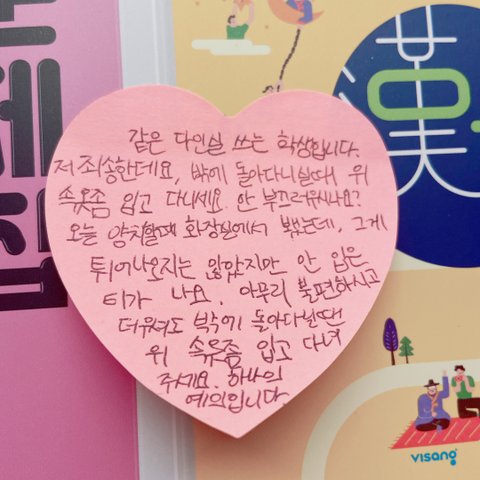 같은 다인실 쓰는 학생입니다.
저 죄송한데요, 밖에 돌아다니실때, 위
속옷좀 입고 다니세요. 안 부끄러우시나요?
오늘 양치할때 화장실에서 봤는데, 그게
튀어나오지는 않았지만 안 입은
티가 나요. 아무리 불편하시고
더워도 밖에 돌아다닐땐
위 속옷좀 입고 다녀
주세요. 하나의
예의입니다
漢
visang